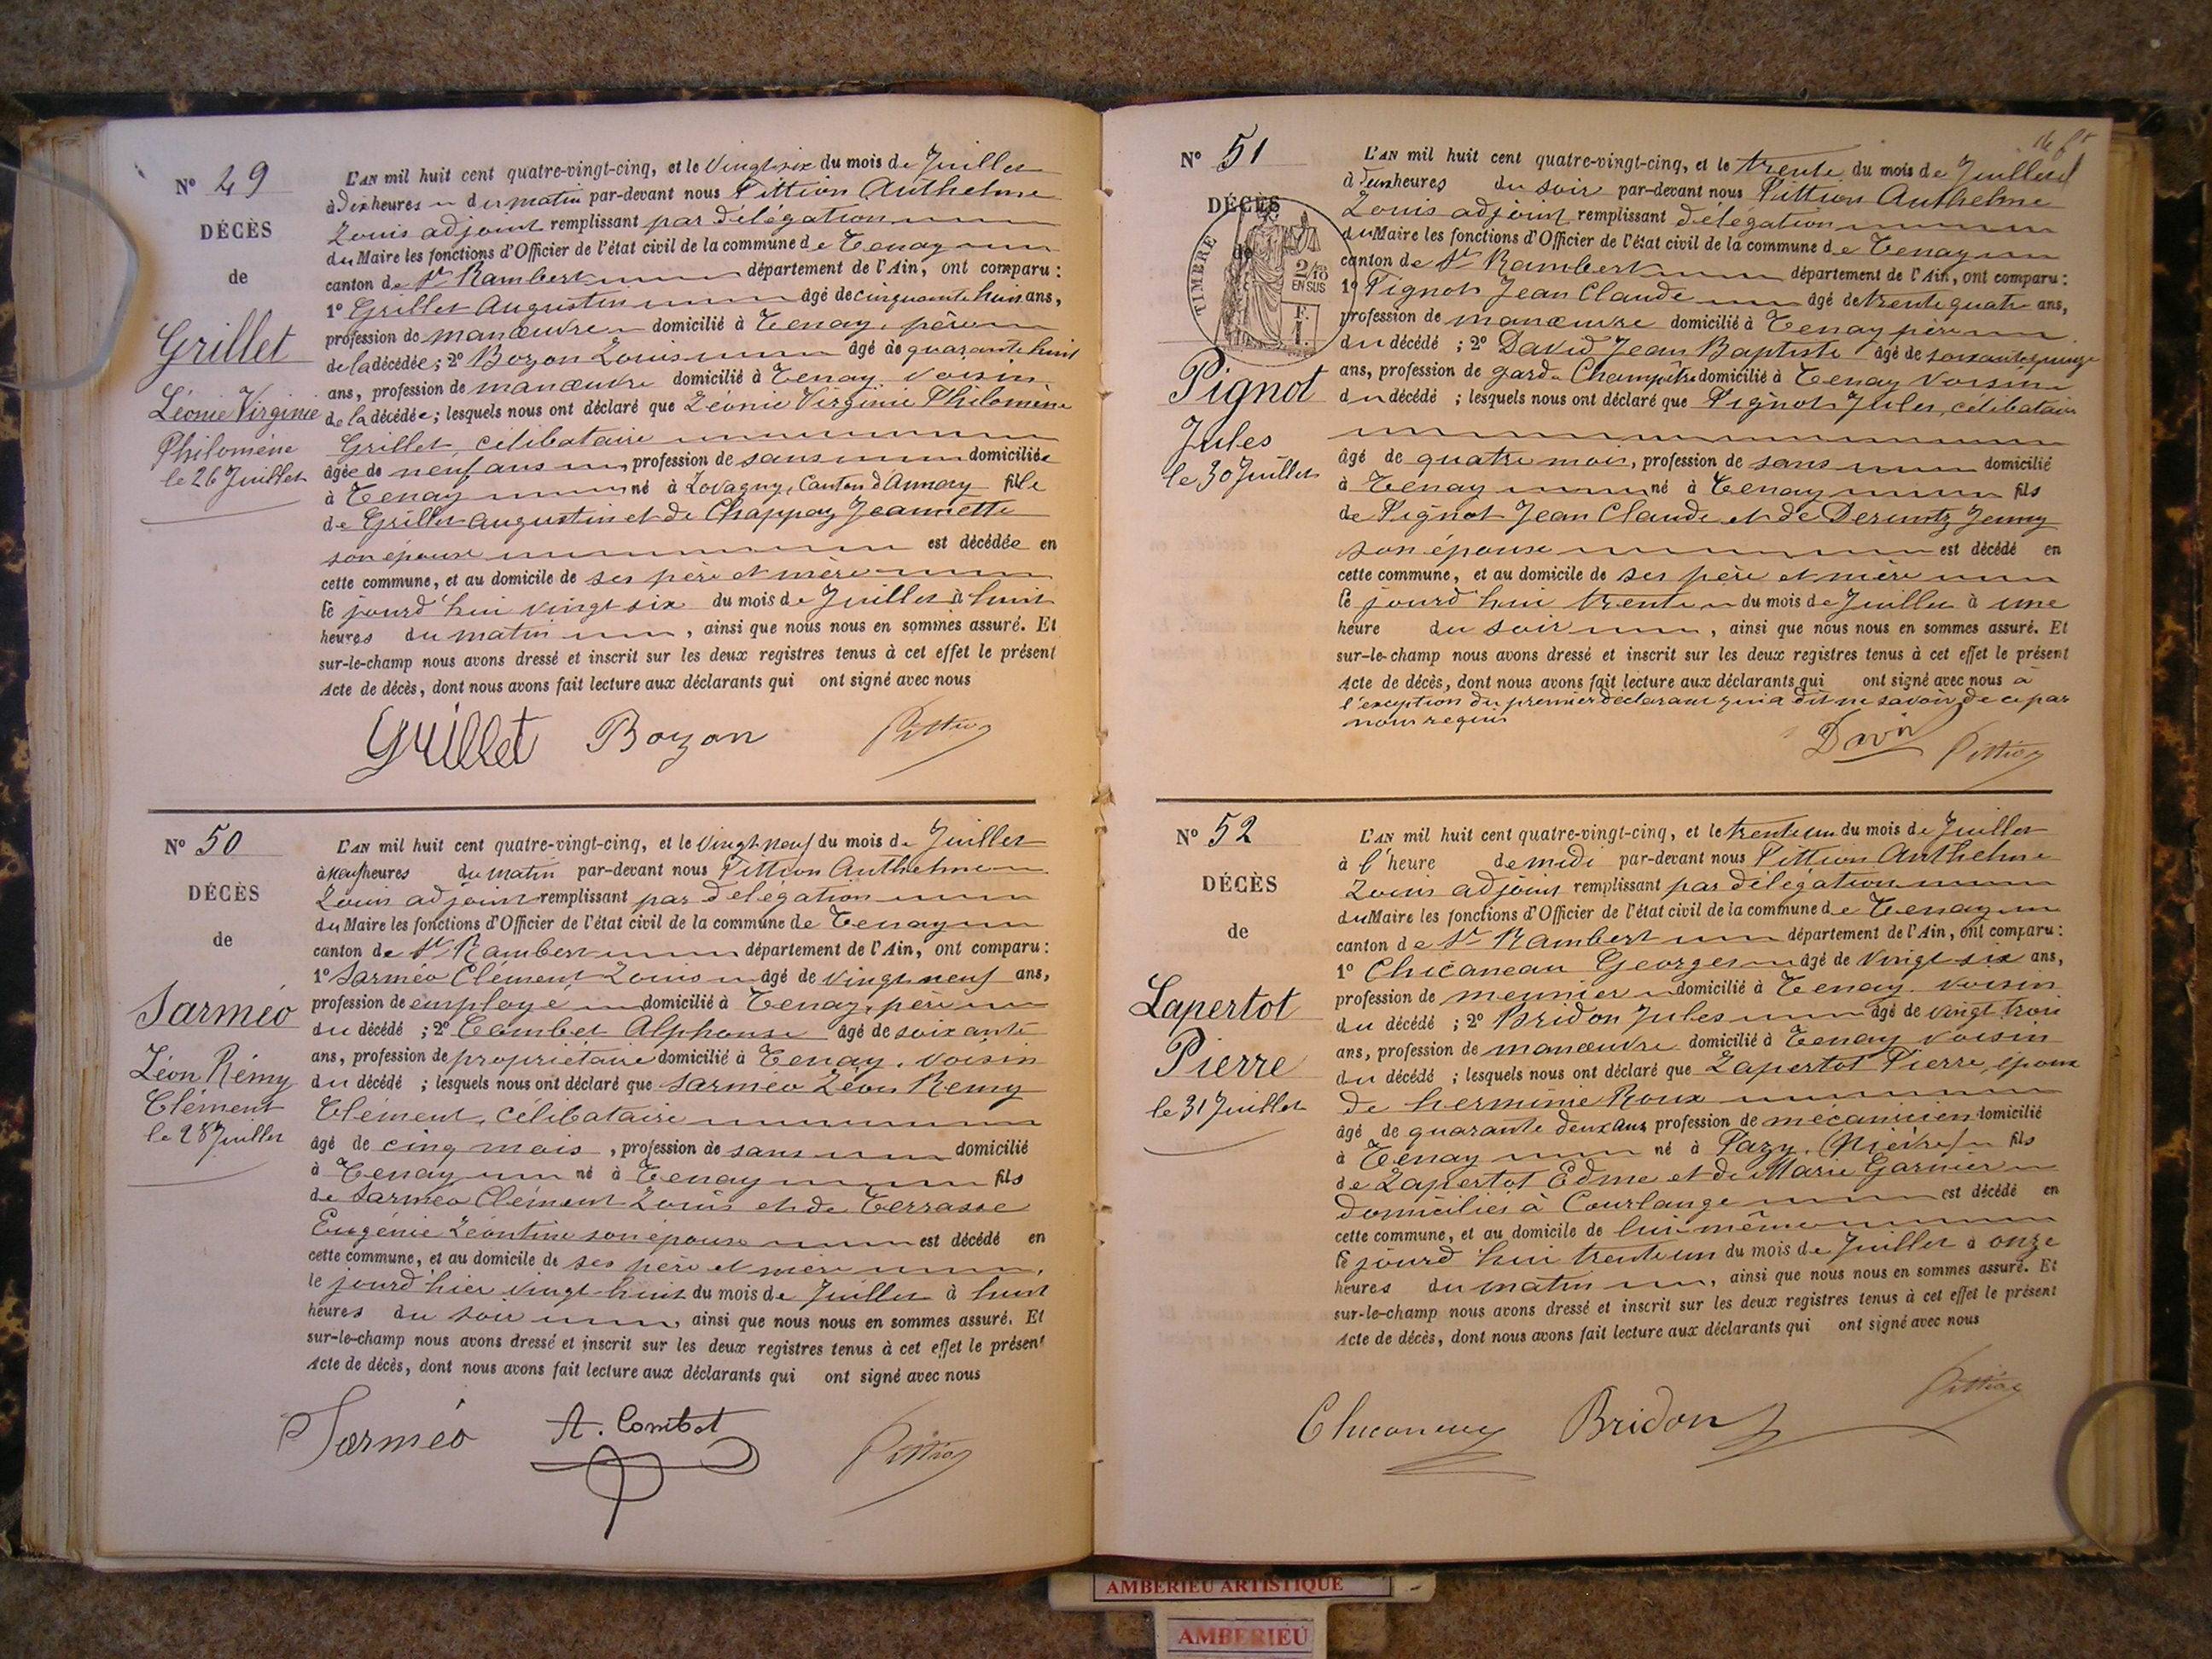 N° 49
DÉCÈS
de
Grillet
Léonie Virginie
Philomène
le 26 Juillet
L'AN mil huit cent quatre-vingt-cinq, et le Vingt six du mois de Juillet
à dix heures du matin par-devant nous Pittion Anthelme
Louis adjoint remplissant par délégation
du Maire les fonctions d'Officier de l'état civil de la commune de Tenay
canton de St Rambert département de l'Ain, ont comparu :
1° Grillet Augustin âgé de cinquante huit ans,
profession de manœuvre domicilié à Tenay, père
de la décédée ; 2° Bozon Louis âgé de quarante huit
ans, profession de manœuvre domicilié à Tenay voisin
de la décédée ; lesquels nous ont déclaré que Léonie Virginie Philomène
Grillet, célibataire
âgée de neuf ans, profession de sans domiciliée
à Tenay né à Lovagny, Canton d'Annecy fille
de Grillet Augustin et de Chappaz Jeannette
son épouse est décédée en
cette commune, et au domicile de ses père et mère
le jourd'hui vingt six du mois de Juillet à huit
heures du matin, ainsi que nous nous en sommes assuré. Et
sur-le-champ nous avons dressé et inscrit sur les deux registres tenus à cet effet le présent
Acte de décès, dont nous avons fait lecture aux déclarants qui ont signé avec nous
Grillet Bozon Pittion
N° 50
DÉCÈS
de
Sarméo
Léon Rémy
Clément
le 28 Juillet
L'AN mil huit cent quatre-vingt-cinq, et le Vingt neuf du mois de Juillet
à neuf heures du matin par-devant nous Pittion Anthelme
Louis adjoint remplissant par délégation
du Maire les fonctions d'Officier de l'état civil de la commune de Tenay
canton de St Rambert département de l'Ain, ont comparu :
1° Sarméo Clément Louis âgé de vingt neuf ans,
profession de employé domicilié à Tenay, père
du décédé ; 2° Combet Alphonse âgé de soixante
ans, profession de propriétaire domicilié à Tenay, voisin
du décédé ; lesquels nous ont déclaré que Sarméo Léon Remy
Clément, célibataire
âgé de cinq mois, profession de sans domicilié
à Tenay né à Tenay fils
de Sarméo Clément Louis et de Terrasse
Eugénie Léontine son épouse est décédé en
cette commune, et au domicile de ses père et mère,
le jourd'hier vingt-huit du mois de Juillet à huit
heures du soir, ainsi que nous nous en sommes assuré. Et
sur-le-champ nous avons dressé et inscrit sur les deux registres tenus à cet effet le présent
Acte de décès, dont nous avons fait lecture aux déclarants qui ont signé avec nous
Sarméo A. Combet Pittion
N° 51
DÉCÈS
de
TIMBRE
2/10
EN SUS
F.
1.
Pignot
Jules
le 30 Juillet
L'AN mil huit cent quatre-vingt-cinq, et le trente du mois de Juillet
à deux heures du soir par-devant nous Pittion Anthelme
Louis adjoint remplissant délégation
du Maire les fonctions d'Officier de l'état civil de la commune de Tenay
canton de St Rambert département de l'Ain, ont comparu :
1° Pignot Jean Claude âgé de trente quatre ans,
profession de manœuvre domicilié à Tenay père
du décédé ; 2° David Jean Baptiste âgé de soixante quinze
ans, profession de garde Champêtre domicilié à Tenay voisin
du décédé ; lesquels nous ont déclaré que Pignot Jules, célibataire
âgé de quatre mois, profession de sans domicilié
à Tenay né à Tenay fils
de Pignot Jean Claude et de Jenny
son épouse est décédé en
cette commune, et au domicile de ses père et mère
le jourd'hui trente du mois de Juillet à une
heure du soir, ainsi que nous nous en sommes assuré. Et
sur-le-champ nous avons dressé et inscrit sur les deux registres tenus à cet effet le présent
Acte de décès, dont nous avons fait lecture aux déclarants qui ont signé avec nous à
l'exception du premier déclarant qui a dit ne savoir de ce par
nous requis
David Pittion
N° 52
DÉCÈS
de
Lapertot
Pierre
le 31 Juillet
L'AN mil huit cent quatre-vingt-cinq, et le trente un du mois de Juillet
à l'heure de midi par-devant nous Pittion Anthelme
Louis adjoint remplissant par délégation
du Maire les fonctions d'Officier de l'état civil de la commune de Tenay
canton de St Rambert département de l'Ain, ont comparu :
1° Chicaneau Georges âgé de vingt six ans,
profession de meunier domicilié à Tenay voisin
du décédé ; 2° Bridon Jules âgé de vingt trois
ans, profession de manœuvre domicilié à Tenay voisin
du décédé ; lesquels nous ont déclaré que Lapertot Pierre, époux
de herminie Roux
âgé de quarante deux ans profession de mécanicien domicilié
à Tenay né à Pazy (Nièvre) fils
de Lapertot Edme et de Marie Garnier
domiciliés à Courlange est décédé en
cette commune, et au domicile de lui même
le jourd'hui trente un du mois de Juillet à onze
heures du matin, ainsi que nous nous en sommes assuré. Et
sur-le-champ nous avons dressé et inscrit sur les deux registres tenus à cet effet le présent
Acte de décès, dont nous avons fait lecture aux déclarants qui ont signé avec nous
Pittion
Chicaneau Bridon
AMBERIEU ARTISTIQUE
AMBERIEU